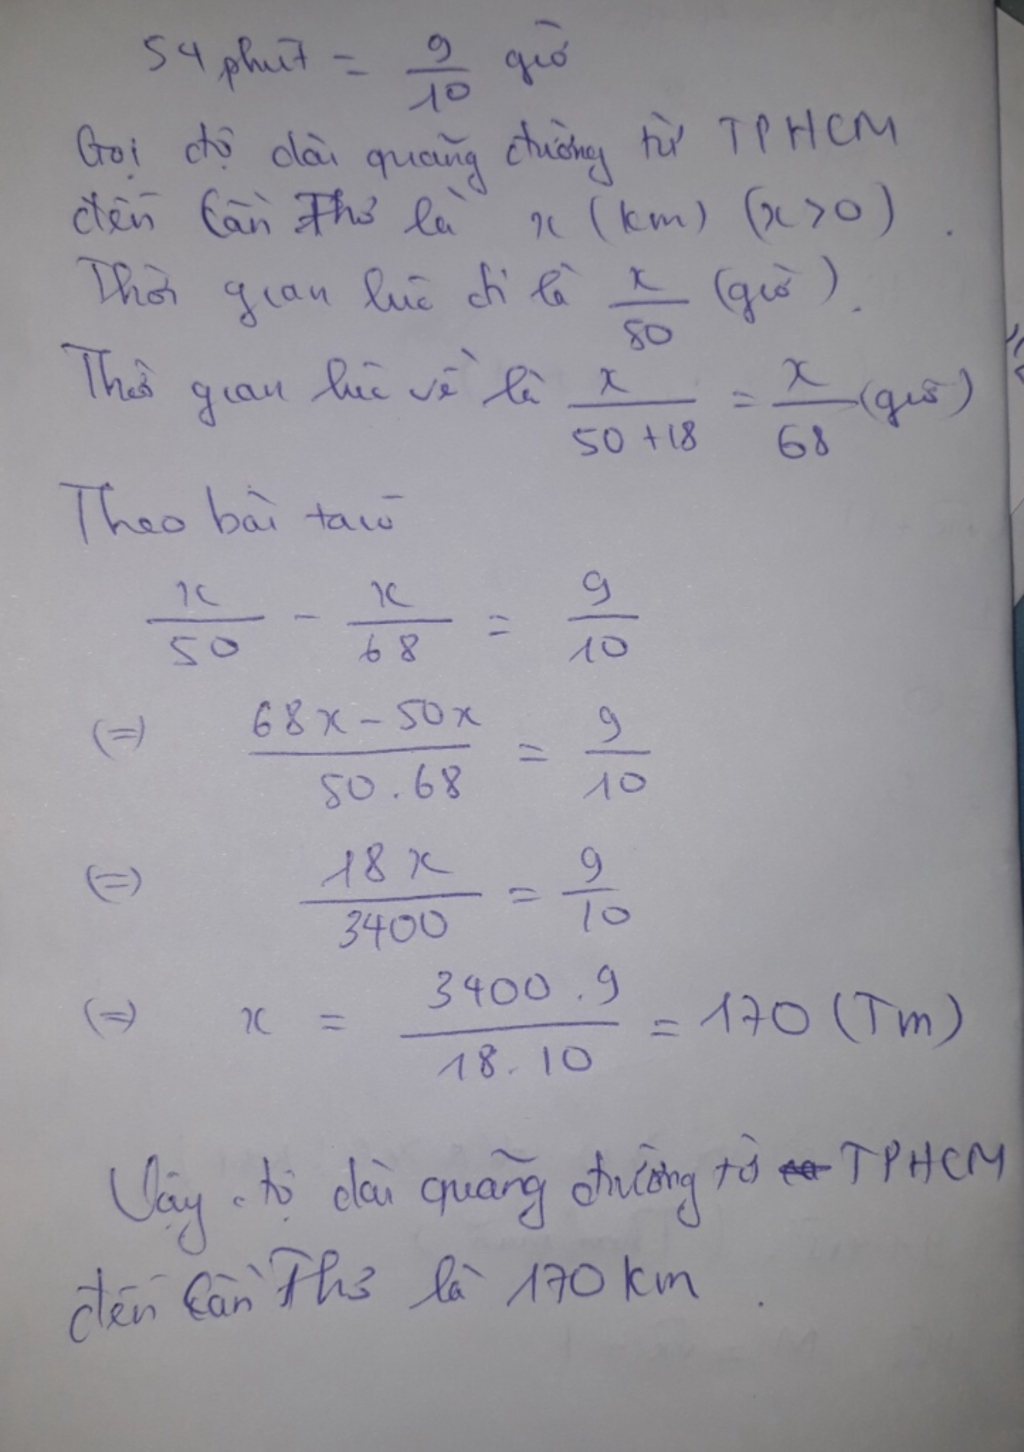 54 phút = 9/10 giờ
Gọi độ dài quãng đường từ TPHCM
đến Cần Thơ là x (km) (x>0).
Thời gian lúc đi là x/50 (giờ).
Thời gian lúc về là x/(50+18) = x/68 (giờ)
Theo bài ta có
x/50 - x/68 = 9/10
(=) (68x - 50x)/(50.68) = 9/10
(=) 18x/3400 = 9/10
(=) x = (3400.9)/(18.10) = 170 (Tm)
Vậy độ dài quãng đường từ TPHCM
đến Cần Thơ là 170 km.